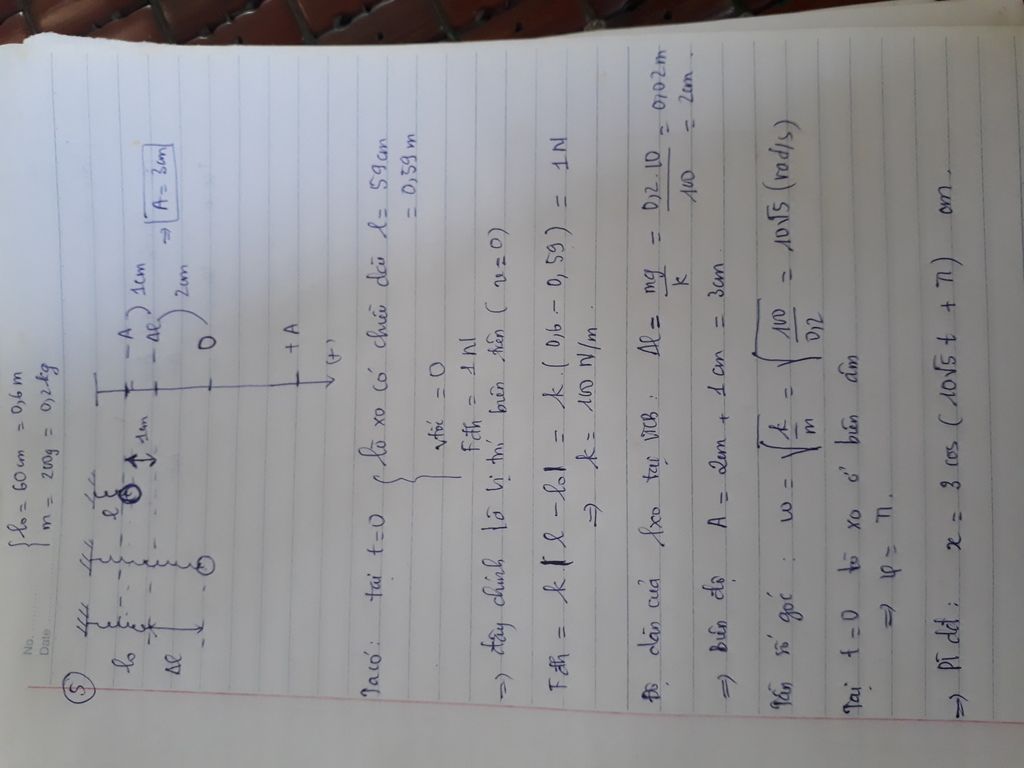 No.
Date
{ l₀ = 60cm = 0,6m
m = 200g = 0,2kg
⑤
l₀
Δl
l
1cm
-A
-Δl
O
+A
(+)
) 1cm
) 2cm
⇒ A = 3cm
Ta có: tại t=0 { lò xo có chiều dài l = 59cm
= 0,59m
vtốc = 0
Fđh = 1N
⇒ đây chính là vị trí biên trên (v=0)
Fđh = k|l - l₀| = k(0,6 - 0,59) = 1N
⇒ k = 100 N/m.
Độ dãn của lxo tại VTCB: Δl = mg/k = 0,2.10/100 = 0,02m
= 2cm.
⇒ biên độ A = 2cm + 1cm = 3cm
Tần số góc: ω = √(k/m) = √(100/0,2) = 10√5 (rad/s)
Tại t=0 lò xo ở biên âm
⇒ φ = π.
⇒ ptdđ: x = 3cos(10√5t + π) cm.